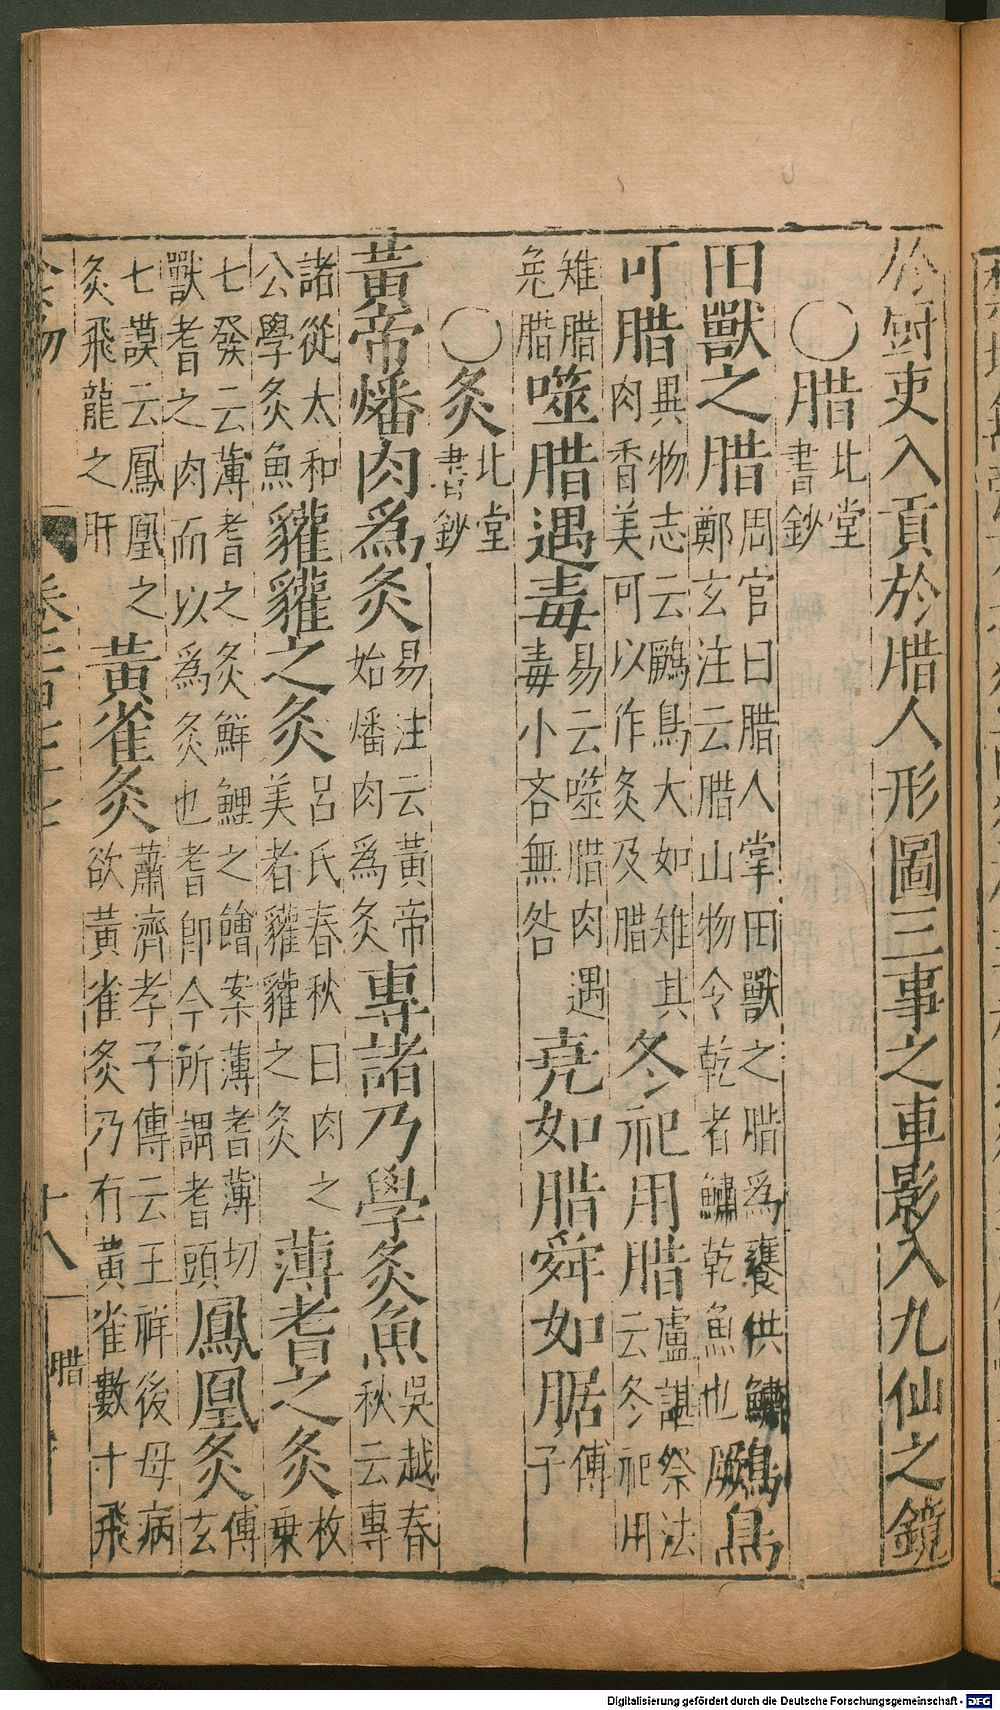 於厨吏入貢於腊人形圖三事之車影入九仙之鏡
〇腊北堂書鈔
田獸之腊周官曰腊人掌田獸之腊爲饔供鱐鄭玄注云腊山物令乾者鱐乾魚也鷉鳥
可腊異物志云鷉鳥大如雉其肉香美可以作炙及腊冬祀用腊盧諶祭法云冬祀用
雉腊兎腊噬腊遇毒易云噬腊肉遇毒小吝無咎堯如腊舜如腒傅子
〇炙北堂書鈔
黃帝燔肉爲炙易注云黃帝始燔肉爲炙專諸乃學炙魚吳越春秋云專
諸從太和公學炙魚貛貛之炙呂氏春秋曰肉之美者貛貛之炙薄耆之炙枚乗
七發云薄耆之炙鮮鯉之鱠案薄耆薄切獸耆之肉而以爲炙也耆卽今所謂耆頭鳳凰炙傅玄
七謨云鳳凰之炙飛龍之肝黃雀炙蕭濟孝子傳云王祥後母病欲黃雀炙乃有黃雀數十飛
食物 十八 腊
Digitalisierung gefördert durch die Deutsche Forschungsgemeinschaft - DFG